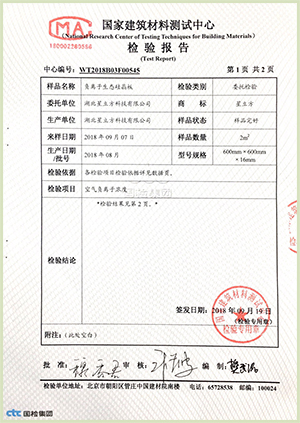 MA
180008283558
国家建筑材料测试中心
(National Research Center of Testing Techniques for Building Materials)
检验报告
(Test Report)
中心编号：WT2018B03F00545 第 1 页 共 2 页
样品名称 负离子生态硅晶板 检验类别 委托检验
委托单位 湖北星立方科技有限公司 商 标 星立方
生产单位 湖北星立方科技有限公司 样品状态 样品完好
来样日期 2018 年 09 月 07 日 样品数量 2m²
生产日期/批号 2018 年 08 月 型号规格 600mm×600mm×16mm
检验依据 各检验项目检验依据详见数据页。
检验项目 空气负离子浓度
检验结论 *检验结果见第 2 页。*
国家建筑材料测试中心
检验专用章
签发日期：2018 年 09 月 19 日
(检验专用章)
附注：(此处空白)
批 准： 审 核： 编 制：
检验单位地址：北京市朝阳区管庄中国建材院南楼 电话：65728538 邮编：100024
ctc 国检集团